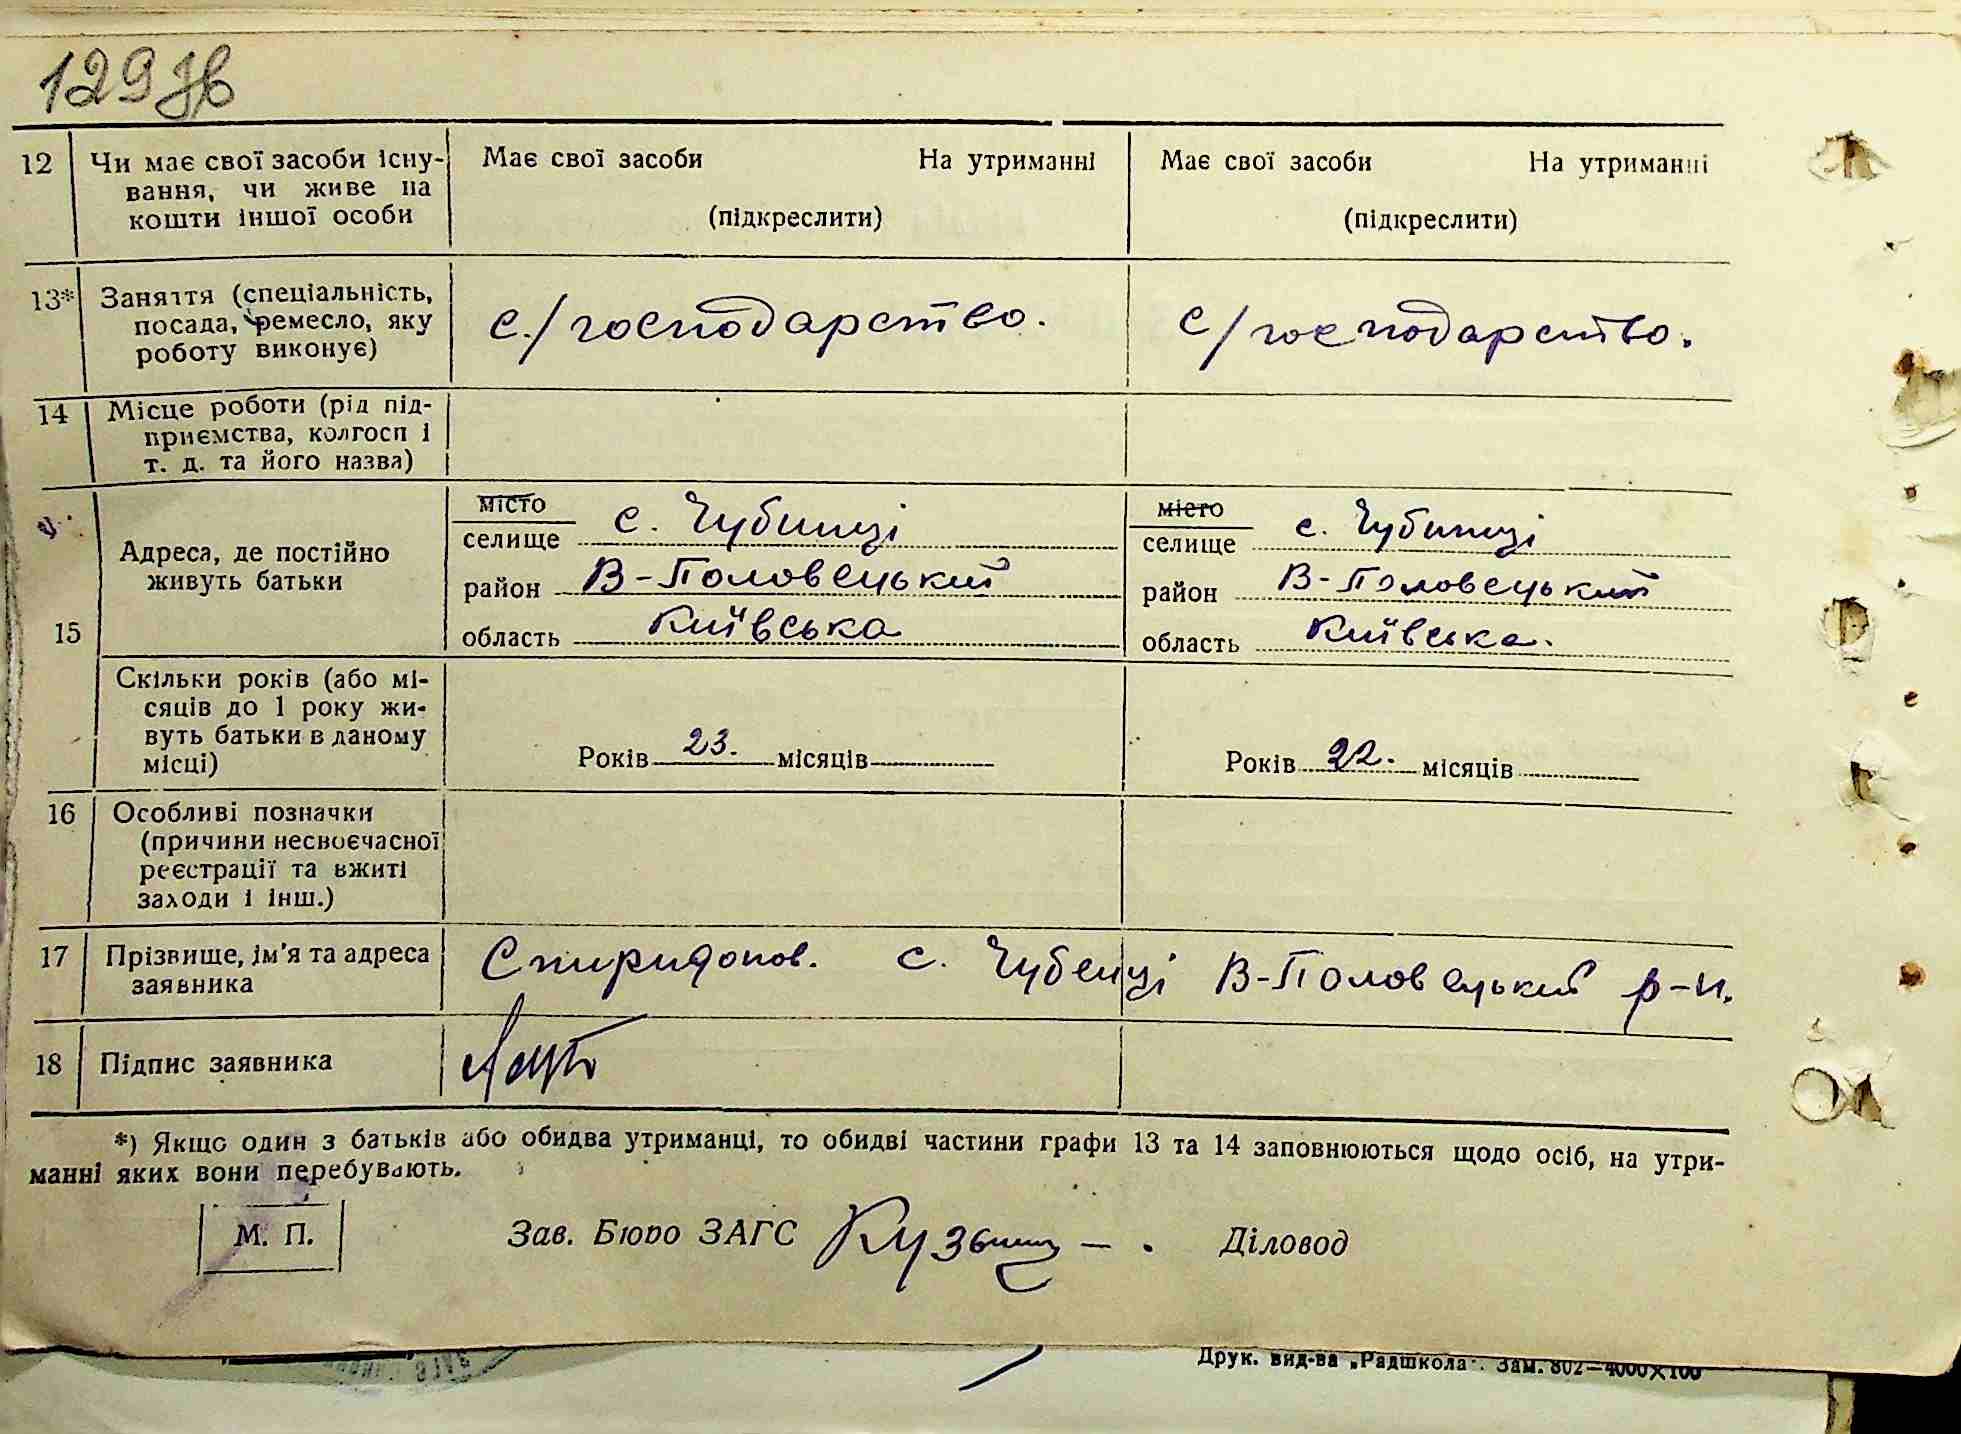 129 зв
12 Чи має свої засоби існу- Має свої засоби На утриманні Має свої засоби На утриманні
вання, чи живе на
кошти іншої особи (підкреслити) (підкреслити)
13*) Заняття (спеціальність,
посада, ремесло, яку с./господарство. с/господарство.
роботу виконує)
14 Місце роботи (рід під-
приємства, колгосп і
т. д. та його назва)
місто місто
селище с. Чубинці селище с. Чубинці
Адреса, де постійно
живуть батьки район В-Половецький район В-Половецький
15 область Київська область Київська.
Скільки років (або мі-
сяців до 1 року жи-
вуть батьки в даному
місці) Років 23. місяців Років 22. місяців
16 Особливі позначки
(причини несвоєчасної
реєстрації та вжиті
заходи і інш.)
17 Прізвище, ім'я та адреса Спиридонов. с. Чубенці В-Половецький р-н.
заявника
18 Підпис заявника
*) Якщо один з батьків або обидва утриманці, то обидві частини графи 13 та 14 заповнюються щодо осіб, на утри-
манні яких вони перебувають.
М. П. Зав. Бюро ЗАГС Діловод
Друк. вид-ва „Радшкола". Зам. 802—4000×100